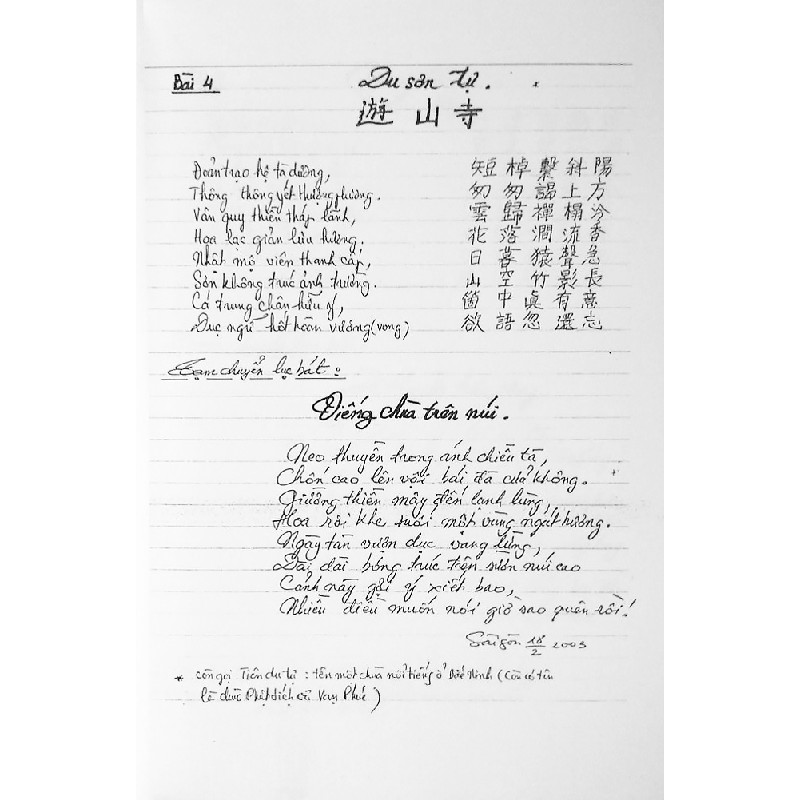 Bài 4
Du sơn tự. *
遊山寺
Đoản trạo hệ tà dương, 短棹繫斜陽
Thông thông yết thượng phương. 匆匆謁上方
Vân quy thiền tháp lãnh, 雲歸禪榻冷
Hoa lạc giản lưu hương. 花落澗流香
Nhật mộ viên thanh cấp, 日暮猿聲急
Sơn không trúc ảnh trường. 山空竹影長
Cá trung chân hữu ý, 箇中眞有意
Dục ngữ hốt hoàn vương (vong) 欲語忽還忘
Tạm chuyển lục bát:
Viếng chùa trên núi.
Neo thuyền trong ánh chiều tà,
Chốn cao lên vội bái đà cửa không.
Giường thiền mây đến lạnh lùng,
Hoa rơi khe suối một vùng ngát hương.
Ngày tàn vượn dục vang lừng,
Dài dài bóng trúc trên nón núi cao
Cảnh này gợi ý xiết bao,
Nhiều điều muốn nói giờ sao quên rồi!
Sàigòn 18/2 2003
* còn gọi Tiên du tự: tên một chùa nổi tiếng ở Bắc Ninh (Còn có tên
là chùa Phật tích và Vạn Phúc)